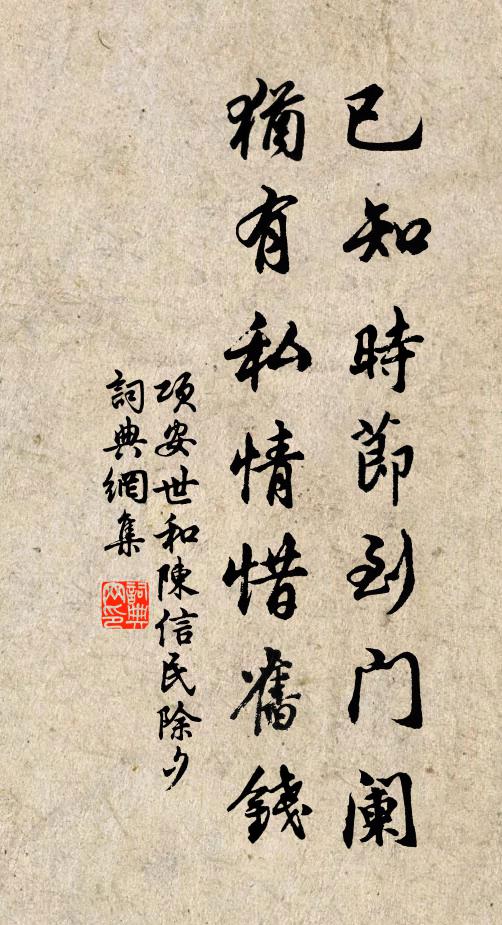 已知時節到門阑
猶有私情惜舊錢
項安世和陳信民除夕
詞典網集
詞典网印